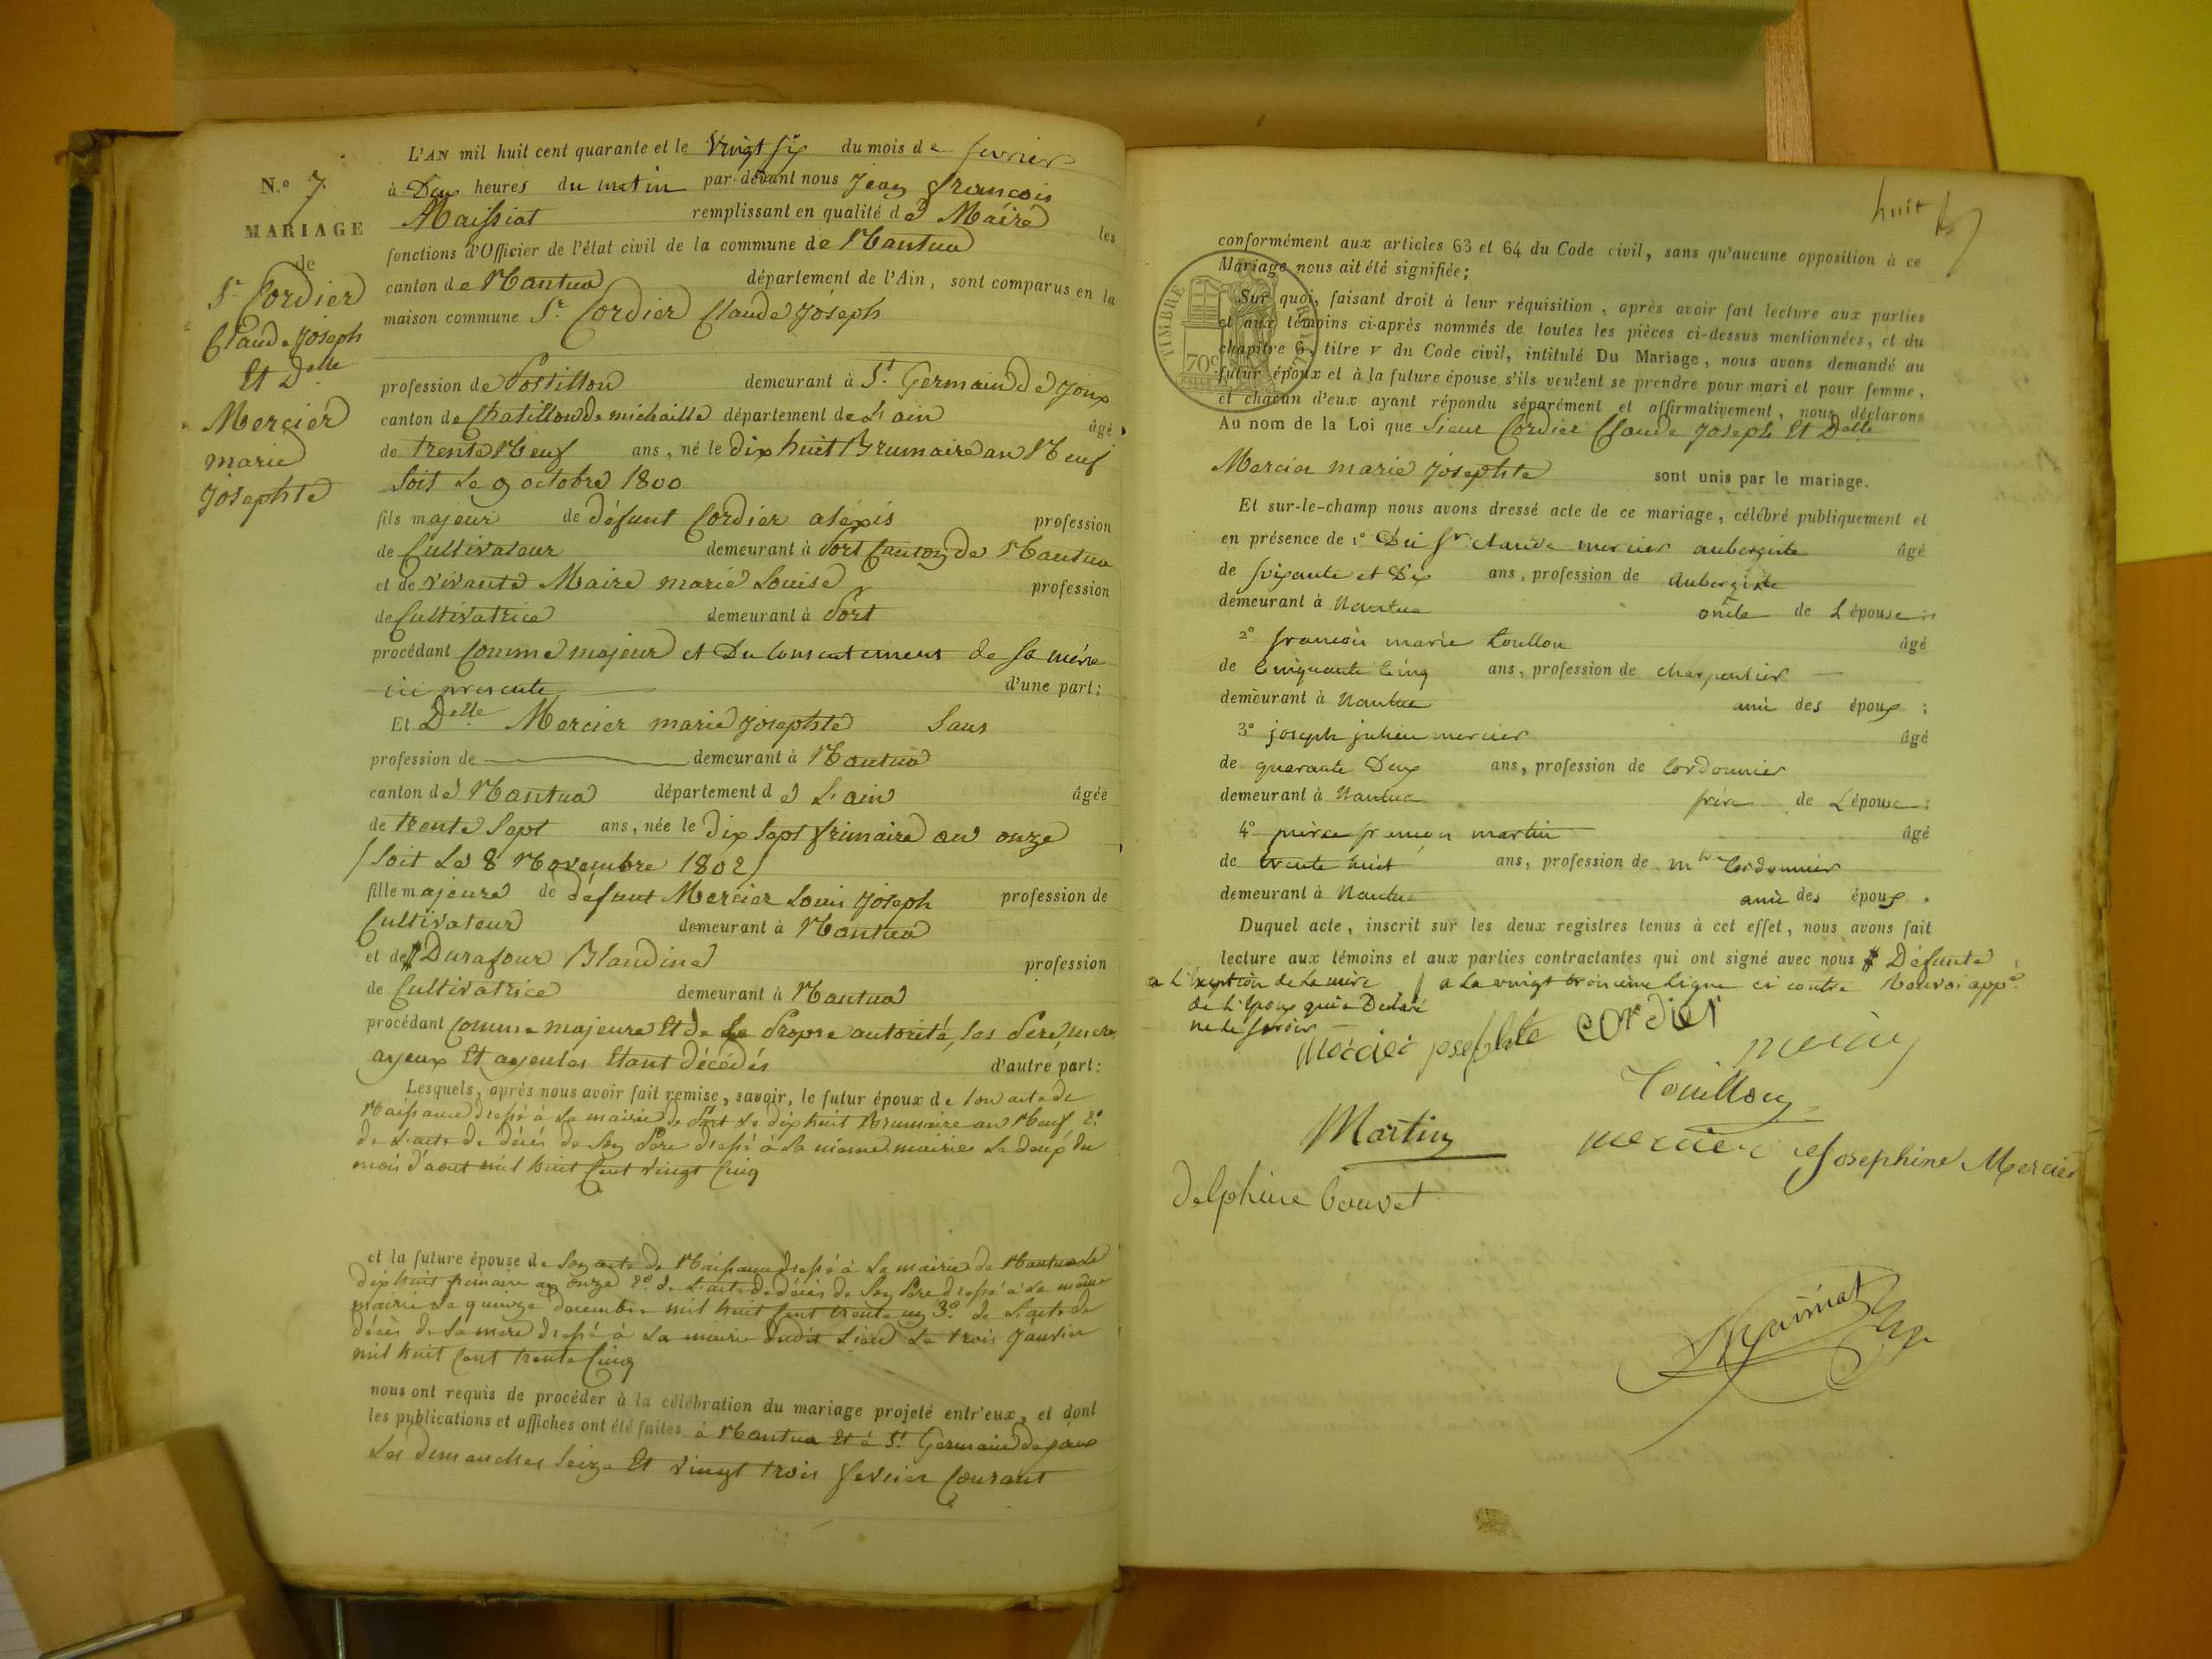 N.o 7.
MARIAGE
de
Sr Cordier
Claude Joseph
Et Delle
Mercier
marie
Josephte
L'AN mil huit cent quarante et le Vingt six du mois de fevrier
à Dix heures du matin par-devant nous Jean françois
Maissiat remplissant en qualité de Maire les
fonctions d'Officier de l'état civil de la commune de Nantua
canton de Nantua département de l'Ain, sont comparus en la
maison commune Sr Cordier Claude Joseph
profession de Postillon demeurant à St Germain de Joux
canton de Chatillon de michaille département de L'ain âgé
de trente Neuf ans, né le dix huit Brumaire an Neuf
soit Le 9 octobre 1800
fils majeur de défunt Cordier alexis profession
de Cultivateur demeurant à Port Canton de Nantua
et de vivante Maire marie Louise profession
de Cultivatrice demeurant à Port
procédant Comme majeur et Du consentement de sa mère
ici presente d'une part:
Et Delle Mercier marie Josephte Sans
profession de demeurant à Nantua
canton de Nantua département de L'ain âgée
de trente Sept ans, née le dix Sept frimaire an onze
/ soit Le 8 Novembre 1802 /
fille majeure de défunt Mercier Louis Joseph profession de
Cultivateur demeurant à Nantua
et de # Durafour Blandine profession
de Cultivatrice demeurant à Nantua
procédant Comme majeure Et de Sa Propre autorité, les Pere, mere,
ayeux Et ayeules Etant décédés d'autre part:
Lesquels, après nous avoir fait remise, savoir, le futur époux de son acte de
Naissance dressé à La mairie de Port Le dix huit Brumaire an Neuf, 2°
de L'acte de décès de Son Pere dressé à La même mairie Le deux du
mois d'aout mil huit Cent vingt Cinq
et la future épouse de Son acte de Naissance dressé à La mairie de Nantua Le
dix huit frimaire an onze 2° de L'acte de décès de Son Pere dressé à La même
mairie Le quinze decembre mil huit Cent trente un 3° de L'acte de
décès de Sa mere dressé à La mairie dudit Lieu Le trois Janvier
mil huit Cent trente Cinq
nous ont requis de procéder à la célébration du mariage projeté entr'eux, et dont
les publications et affiches ont été faites à Nantua Et à St Germain de joux
Les dimanches Seize Et vingt trois fevrier Courant
huit
conformément aux articles 63 et 64 du Code civil, sans qu'aucune opposition à ce
Mariage nous ait été signifiée;
TIMBRE
70c
Sur quoi, faisant droit à leur réquisition, après avoir fait lecture aux parties
et aux témoins ci-après nommés de toutes les pièces ci-dessus mentionnées, et du
chapitre 6, titre v du Code civil, intitulé Du Mariage, nous avons demandé au
futur époux et à la future épouse s'ils veulent se prendre pour mari et pour femme,
et chacun d'eux ayant répondu séparément et affirmativement, nous déclarons
Au nom de la Loi que Sieur Cordier Claude Joseph Et Delle
Mercier marie Josephte sont unis par le mariage.
Et sur-le-champ nous avons dressé acte de ce mariage, célébré publiquement et
en présence de 1° Du Sr claude mercier aubergiste âgé
de soixante et Dix ans, profession de Aubergiste
demeurant à Nantua oncle de L'épouse;
2° françois marie Touillon âgé
de Cinquante Cinq ans, profession de charpentier
demeurant à Nantua ami des époux;
3° joseph julien mercier âgé
de quarante Deux ans, profession de Cordonnier
demeurant à Nantua frère de L'épouse;
4° pierre françois martin âgé
de trente huit ans, profession de mtre Cordonnier
demeurant à Nantua ami des époux.
Duquel acte, inscrit sur les deux registres tenus à cet effet, nous avons fait
lecture aux témoins et aux parties contractantes qui ont signé avec nous # Défunte
a L'exeption de La mère / a La vingt troisieme Ligne ci contre Renvoi appé
de L'Epoux qui a Declaré
ne le savoir
Mercier josephte cordier
mercier
Touillon
Martin
mercier Josephine Mercier
Delphine Bouvet
Maissiat